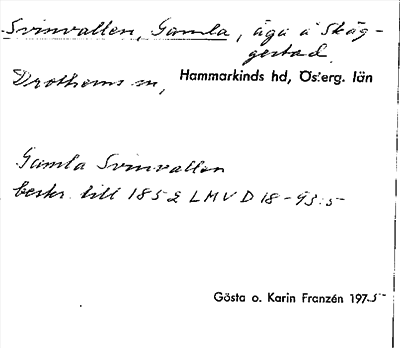 Svinvallen, Gamla, äga å Skäg-
gestad.
Drothems sn, Hammarkinds hd, Österg. län
Gamla Svinvallen
beskr. till 1852 LMV D 18-93:5
Gösta o. Karin Franzén 1975